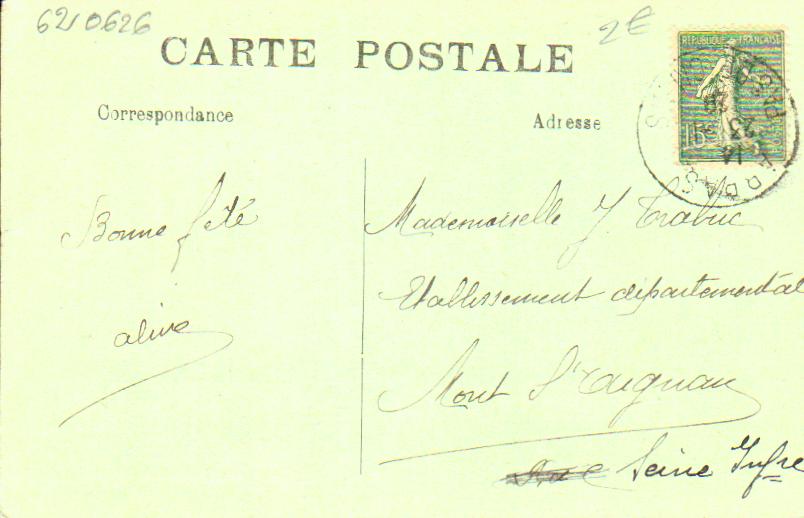 6210626
2€
CARTE POSTALE
RÉPUBLIQUE FRANÇAISE
15c
Correspondance
Adresse
Bonne fête
aline
Mademoiselle J Trabuc
Etablissement départemental
Mont St Aignan
Seine Infre